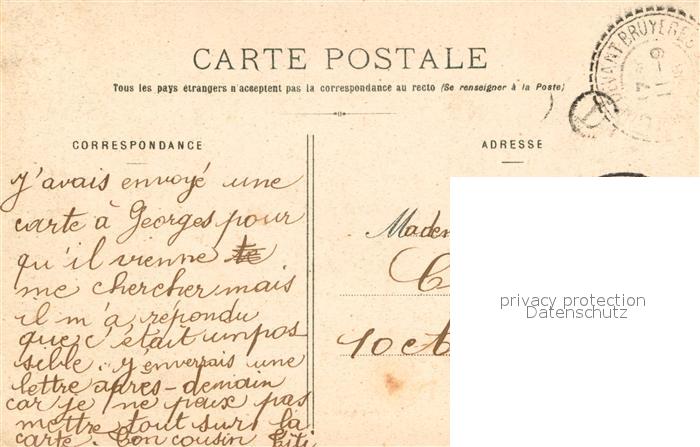 CARTE POSTALE
Tous les pays étrangers n'acceptent pas la correspondance au recto (Se renseigner à la Poste)
CORRESPONDANCE
J'avais envoyé une
carte à Georges pour
qu'il vienne te
me chercher mais
il m'a répondu
que c'était impos
sible. j'enverrais une
lettre après-demain
car je ne peux pas
mettre tout sur la
carte. Ton cousin Titi
ADRESSE
Madem
10 oct
privacy protection
Datenschutz
VANT BRUYERES
6-11